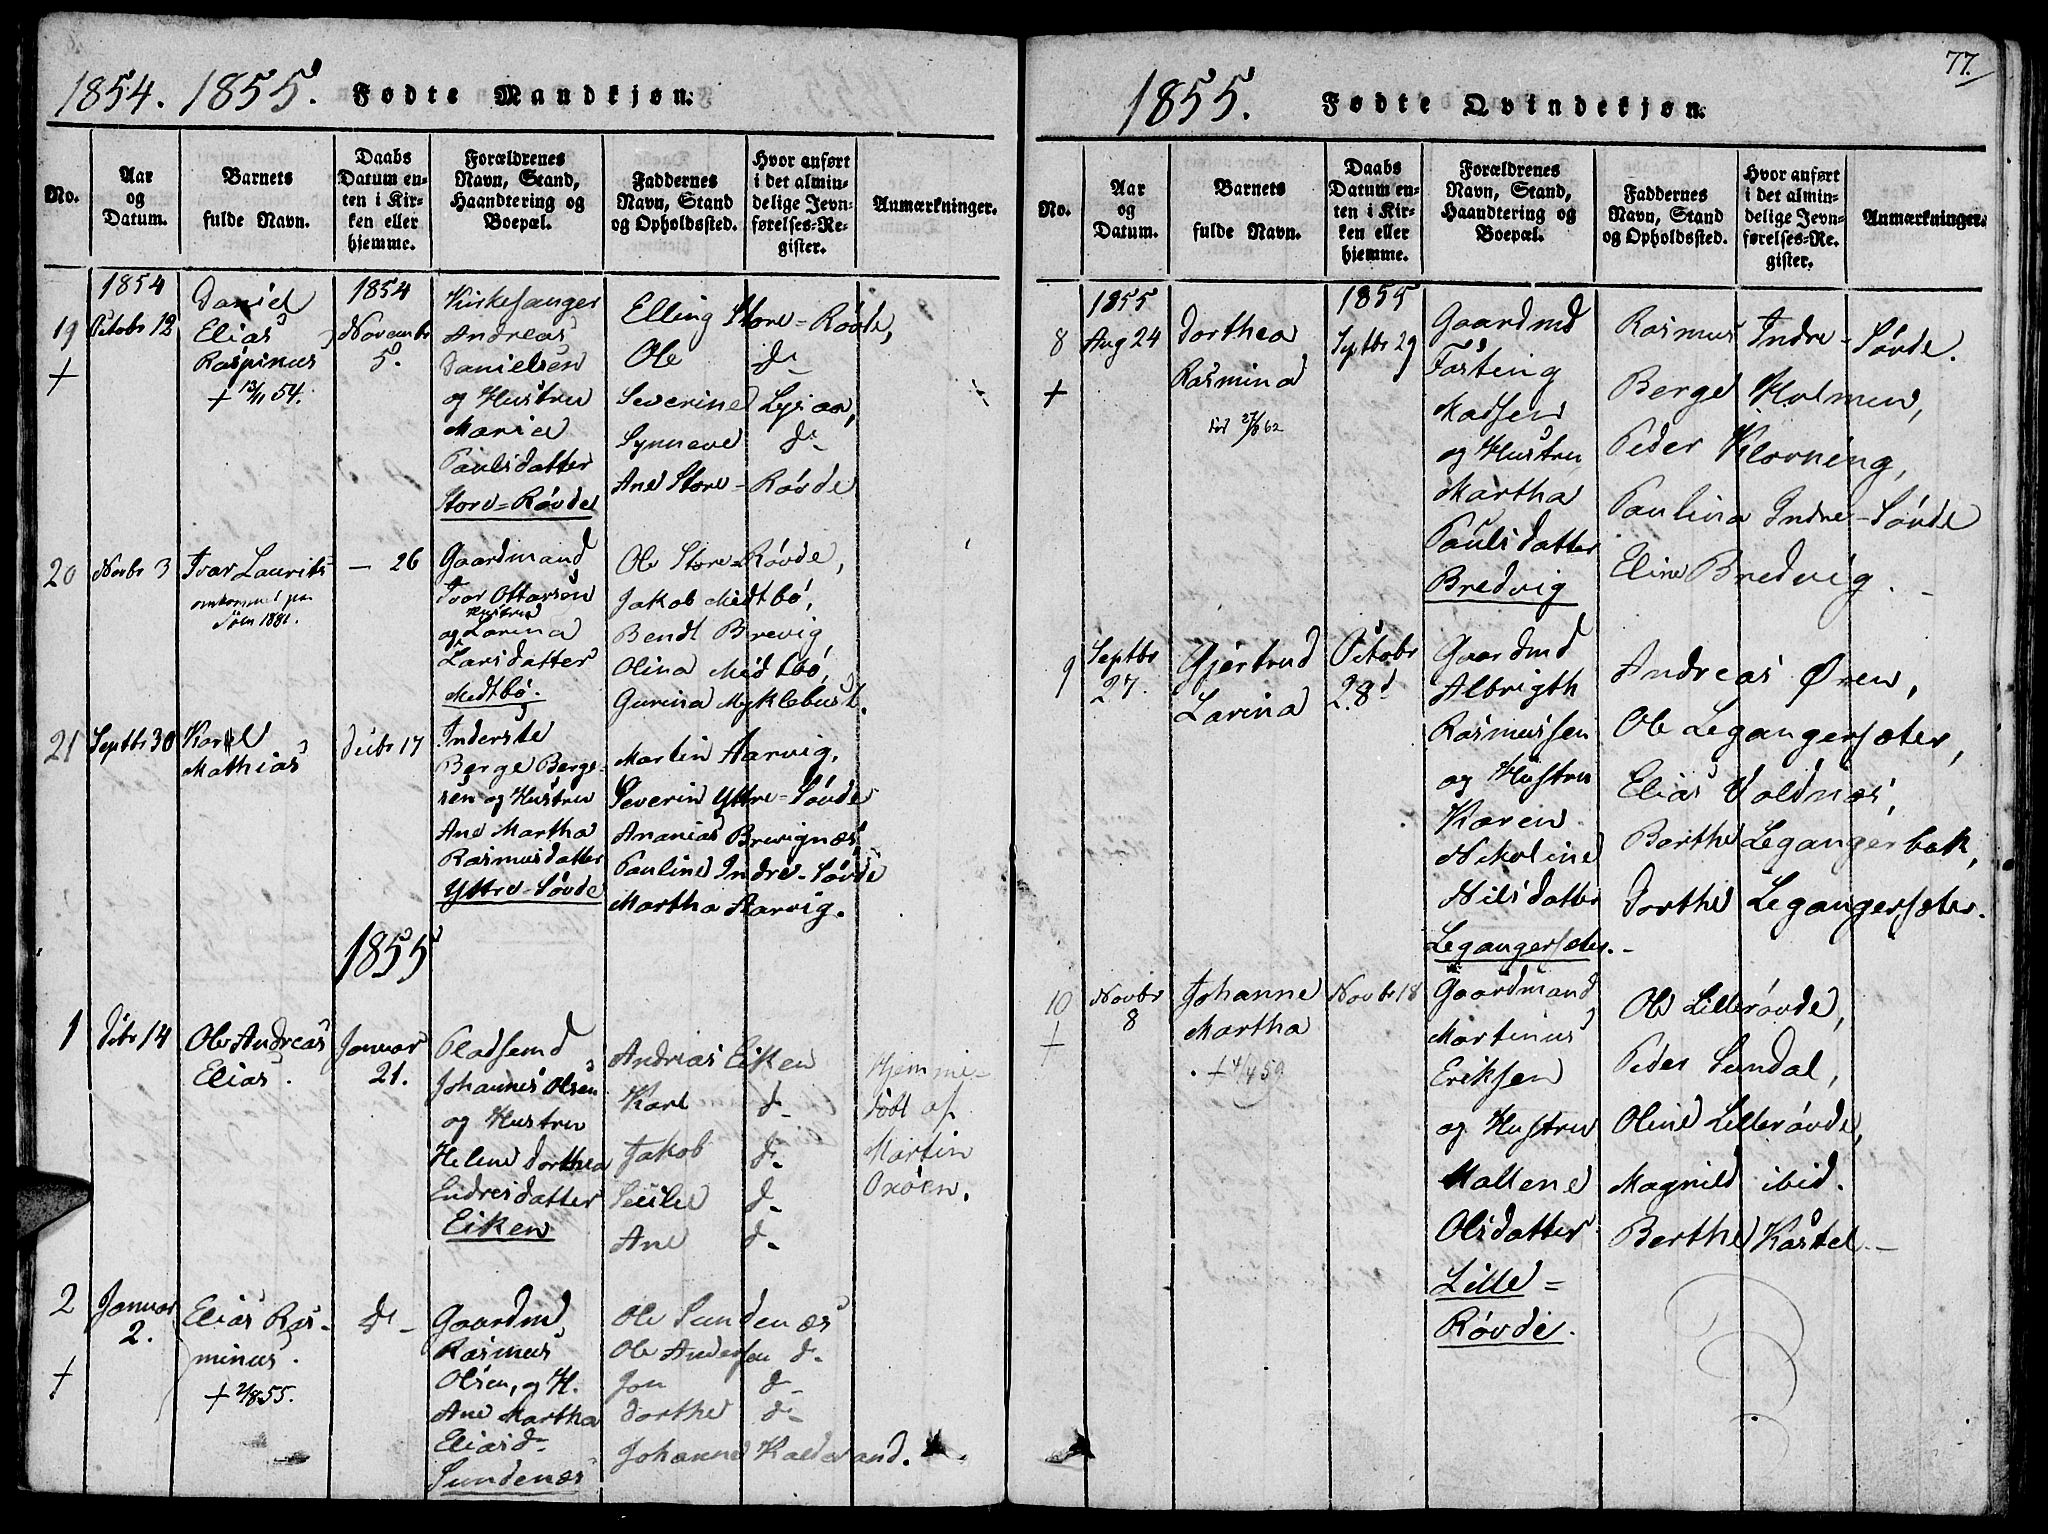 1854. 1855. Fødte Mandkjøn.
No.
Aar og Datum.
Barnets fulde Navn.
Daabs Datum enten i Kirken eller hjemme.
Forældrenes Navn, Stand, Haandtering og Boepæl.
Faddernes Navn, Stand og Opholdssted.
Hvor anført i det almindelige Jevnførelses-Register.
Anmærkninger.
19
+
1854
Octobr 12
Daniel
Elias
Raspinus
+ 13/11 54.
1854
Novembr
5.
Kirkesanger
Andreas
Danielsen
og Hustru
Marie
Paulsdatter
Store-Røvde
Elling Store-Røvde,
Ole d-
Severine Lysaa,
Synneve d-
Ane Store-Røvde
20
Novbr 3
Ivar Laurits
omkommet paa
Søen 1881.
- 26
Gaardmand
Ivar Ottarsen
og Hustru
Larina
Larsdatter
Medtbø.
Ole Store-Røvde,
Jakob Medtbø,
Bendt Brevig
Olina Medtbø,
Gurina Myklebust.
21
Septbr 30
Karl
Mathias
Decbr 17
Inderste
Berge Berge-
sen og Hustru
Ane Martha
Rasmusdatter
Yttre-Søvde
Martin Aarvig,
Severin Yttre-Søvde
Ananias Brevignæs
Pauline Indre-Søvde
Martha Aarvig.
1855
1
Dcbr 14
Ole Andreas
Elias.
Januar
21.
Pladsemd
Johannes Olsen
og Hustru
Helene Dorthea
Endresdatter
Eiken
Andreas Eiken
Karl d-
Jakob d-
Secilie d-
Ane d-
Hjemme-
døbt af
Martin
Oxöen.
2
+
Januar
2.
Elias Ras-
minus.
+ 2/8 55.
d-
Gaardmd
Rasmus
Olsen, og H.
Ane Martha
Eliasd-
Sundenæs
Ole Sundenæs
Ole Andersen d-
Jon d-
Dorthe d-
Johanne Kaldvand.
77.
1855. Fødte Qvindekjøn.
No.
Aar og Datum.
Barnets fulde Navn.
Daabs Datum enten i Kirken eller hjemme.
Forældrenes Navn, Stand, Haandtering og Boepæl.
Faddernes Navn, Stand og Opholdssted.
Hvor anført i det almindelige Jevnførelses-Register.
Anmærkninger.
8
+
1855
Aug 24
Dorthea
Rasmina
1855
Septbr 29
Gaardmd
Fosting
Madsen
og Hustru
Martha
Paulsdatter
Bredvig
Rasmus Indre-Søvde.
Berge Holmen,
Peder Klovning,
Paulina Indre-Søvde
Eline Bredvig.
9
Septbr
27.
Gjertrud
Larina
Octobr
28d
Gaardmd
Albrigth
Rasmussen
og Hustru
Karen
Nikoline
Nilsdatter
Legangersæter.
Andreas Øren,
Ole Legangersæter,
Elias Voldnæs,
Berthe Legangerbak,
Dorthe Legangersæter.
10
+
Novbr
8
Johanne
Martha
+ 4/4 59
Novbr 18
Gaardmand
Martinus
Eriksen
og Hustru
Mallene
Olsdatter
Lille-
Røvde.
Ole Lillerøvde,
Peder Sundal,
Oline Lillerøvde,
Magnild ibid.
Berthe Kastel.-